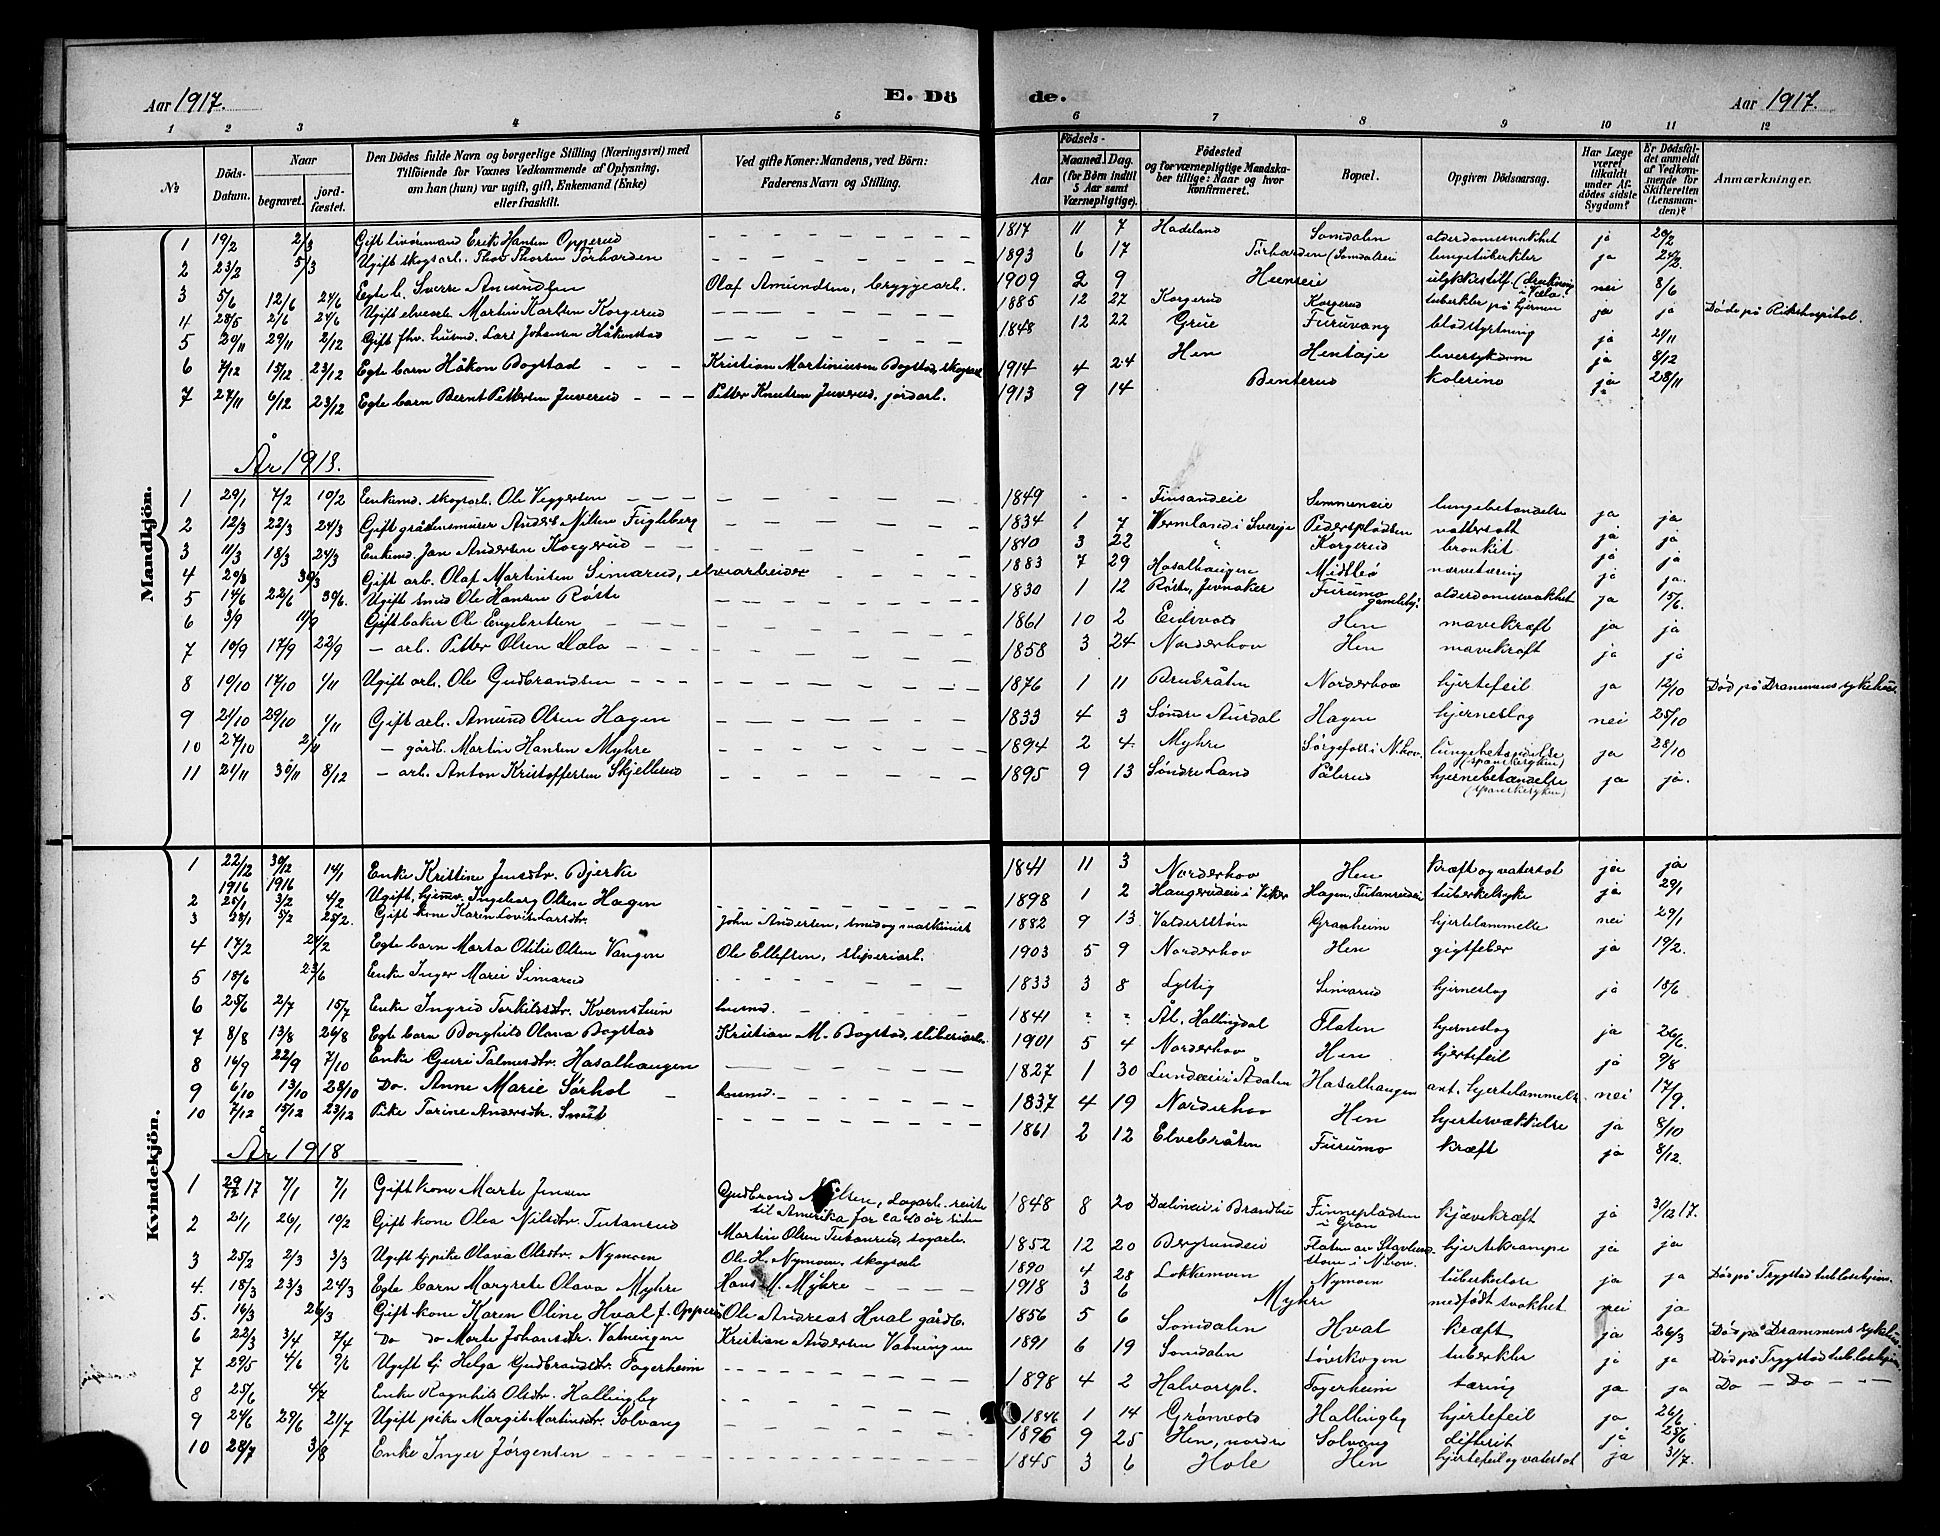 Aar 1917. E. Dö de. Aar 1917.
1 2 3 4 5 6 7 8 9 10 11 12
№ Döds-Datum. Naar begravet. jord-fæstet. Den Dödes fulde Navn og borgerlige Stilling (Næringsvei) med Tilföiende for Voxnes Vedkommende af Oplysning, om han (hun) var ugift, gift, Enkemand (Enke) eller fraskilt. Ved gifte Koner: Mandens, ved Börn: Faderens Navn og Stilling. Födsels- Aar Maaned. Dag. (for Börn indtil 5 Aar samt Værnepligtige). Födested og for værnepligtige Mandskaber tillige: Naar og hvor konfirmeret. Bopæl. Opgiven Dödsaarsag. Har Læge været tilkaldt under Afdödes sidste Sygdom? Er Dödsfaldet anmeldt af Vedkommende for Skifteretten (Lensmanden)? Anmærkninger.
Mandkjön.
1 19/2 2/3 Gift livöremand Erik Hansen Opperud 1817 11 7 Hadeland Somdalen alderdomssvakhet ja 20/2
2 23/2 5/3 Ugift skogsarb. Thov Thorsen Törharden 1893 6 17 Törharden (Somdalseie lungetuberkler ja 24/2
3 5/6 12/6 24/6 Egte b. Sverre Amundsen Olaf Amundsen, bryggearb. 1909 2 9 Heenseie ulykkestilf. (drukning i Væla nei 8/6
4 28/5 2/6 24/6 Ugift elvearb. Martin Karlsen Korgerud 1885 12 27 Korgerud Korgerud tuberkler på hjernen ja ja Döde på Rikshospital.
5 20/11 29/11 2/12 Gift fhv. husmd. Lars Johansen Håkenstad 1848 12 22 Grue Furuvang blodstyrtning ja 21/11
6 7/12 15/12 23/12 Egte barn Håkon Bogstad Kristian Martiniussen Bogstad, skogsarb 1914 4 24 Hen Hentaje leversykdom ja 8/12
7 27/11 6/12 23/12 Egte barn Bernt Pettersen Juverud Petter Knutsen Juverud, jordarb. 1913 9 14 Benterud kolerine ja 28/11
År 1918.
1 29/1 7/2 10/2 Enkemd. skogsarb. Ole Veggersen 1849 - - Finsandeie Semmeneie lungebetændelse ja ja
2 12/3 22/3 24/3 Gift gråstensmurer Anders Nilsen Fugleberg 1834 1 7 Vermland i Sverige Pedersplassen vattersott ja ja
3 11/3 18/3 24/3 Enkemd. Jan Andersen Korgerud 1840 3 22 " Korgerud bronkit ja ja
4 20/3 30/3 Gift arb. Olaf Martinsen Simarud, elvearbeider 1883 7 29 Hasalhaugen Midtbö nærvetæring ja ja.
5 14/6 22/6 30/6. Ugift smed Ole Hansen Röste 1830 1 12 Röste, Jevnaker Furumo gamlehj. alderdomssvakhet ja 15/6.
6 3/9 11/9 Gift baker Ole Engebretsen 1861 10 2 Eidsvold Hen mavekræft ja ja
7 10/9 17/9 22/9 — arb. Petter Olsen Dala 1858 3 24 Norderhov Hen mavekræft ja ja
8 10/10 17/10 1/11 Ugift arb. Ole Gudbrandsen 1876 1 11 Brusråten Norderhov hjertefeil ja 12/10 Död på Drammens sykehus.
9 21/10 29/10 1/11 Gift arb. Amund Olsen Hagen 1833 4 3 Söndre Aurdal Hagen hjerneslag nei 25/10
10 27/10 2/11 — gårdb. Martin Hansen Myhre 1894 2 4 Myhre Sörgefoss i N.hov. lungebetændelse (spanskesyken) ja 28/10
11 21/11 30/11 8/12 — arb. Anton Kristoffersen Skjellerud 1895 9 13 Söndre Land Pålerud hjernebetændelse (spanskesyken) ja ja.
Kvindekjön.
1 22/12 1916 30/12 1916 14/1 Enke Kristine Jensdtr. Bjerke 1841 11 3 Norderhov Hen kræft og vatersot ja ja
2 25/1 3/2 4/2 Ugift, hjemmev. Ingeborg Olsen Hagen 1898 1 2 Haugerudeie i Viker Hagen, Tutanrudeie tuberkelsyke ja 29/1
3 23/1 5/2 25/2. Gift kone Karen Lovise Larsdtr. John Andersen, smed og maskinist 1882 9 13 Valdersstöin Granheim hjertelammelse nei 29/1
4 17/2 24/2 Egte barn Marta Otilie Olsen Vangen Ole Ellefsen, sliperiarb. 1903 5 9 Norderhov Hen gigtfeber ja 19/2.
5 18/6 23/6 Enke Inger Marie Simarud 1833 3 8 Lyltig Simarud hjerneslag ja 18/6
6 25/6 2/7 15/7 Enke Ingrid Torkilsdtr. Kvernstuin husmd. 1841 " " Ål, Hallingdal Flaten hjerneslag ja 26/6.
7 8/8 13/8 26/8 Egte barn Borghild Olava Bogstad Kristian M. Bogstad, sliperiarb. 1901 5 4 Norderhov Hen hjertefeil ja 9/8
8 16/9 22/9 7/10 Enke Guri Palmesdtr. Hasalhaugen 1827 1 30 Lundeeie i Ådalen Hasalhaugen ant. hjertelammelse nei 17/9.
9 6/10 13/10 28/10 Do. Anne Marie Sörhol husmd. 1837 4 19 Norderhov Hen hjertesvækkelse ja 8/10
10 7/12 15/12 23/12 Pike Torine Andersdtr. Smid 1861 2 12 Elvebråten Furumo kræft ja 8/12.
År 1918
1 29/12 17 7/1 7/1 Gift kone Marte Jensen Gudbrand Nilsen, dagarb. reiste til Amerika for ca 40 år siden 1848 8 20 Dælineie i Brandbu Finnepladsen i Gran kjævekræft ja 31/12 17.
2 21/1 26/1 10/2 Gift kone Olea Nilsdtr. Tutanrud Martin Olsen Tutanrud, dagarb. 1852 12 20 Bergsundeie Flaten av Stavlundstom i N.hov. hjertekrampe ja ja
3 25/2 2/3 3/3 Ugift tj. pike Olava Olsdtr. Nymoen Ole H. Nymoen, skogsarb 1890 4 28 Lokkemoen Nymoen tuberkulose ja ja Död på Trygstad tub.losehjem.
4. 18/3 23/3 24/3 Egte barn Margrete Olava Myhre Hans M. Myhre 1918 3 6 Myhre medfödt svakhet nei ja
5. 16/3 26/3 Gift kone Karen Oline Hval f. Opperud Ole Andreas Hval gårdb. 1856 5 6 Somdalen Hval kræft ja 26/3 Död på Drammens sykehus
6 22/3 3/4 7/4 do do Marte Johansdtr. Vatningen Kristian Andersen Vatningen 1891 6 19 Somdalen Lövskogen tuberkler ja ja Död på Trygstad tub.losehjem
7 29/5 4/6 9/6 Ugift tj. Helga Gudbrandsdtr. Fagerheim 1898 4 2 Halvorspl. Fagerheim tæring ja ja Do — Do —
8 25/6 4/7 Enke Ragnhild Olsdtr. Hallingby 1846 1 14 Grönvold Hallingby hjertefeil ja 26/6
9 24/6 29/6 21/7 Ugift pike Margit Martinsdtr. Solvang 1896 9 25 Hen, nordre Solvang difterit ja 25/6
10 28/7 3/8 Enke Inger Jörgensen 1845 3 6 Hole Hen hjertefeil og vatersot ja 31/7.